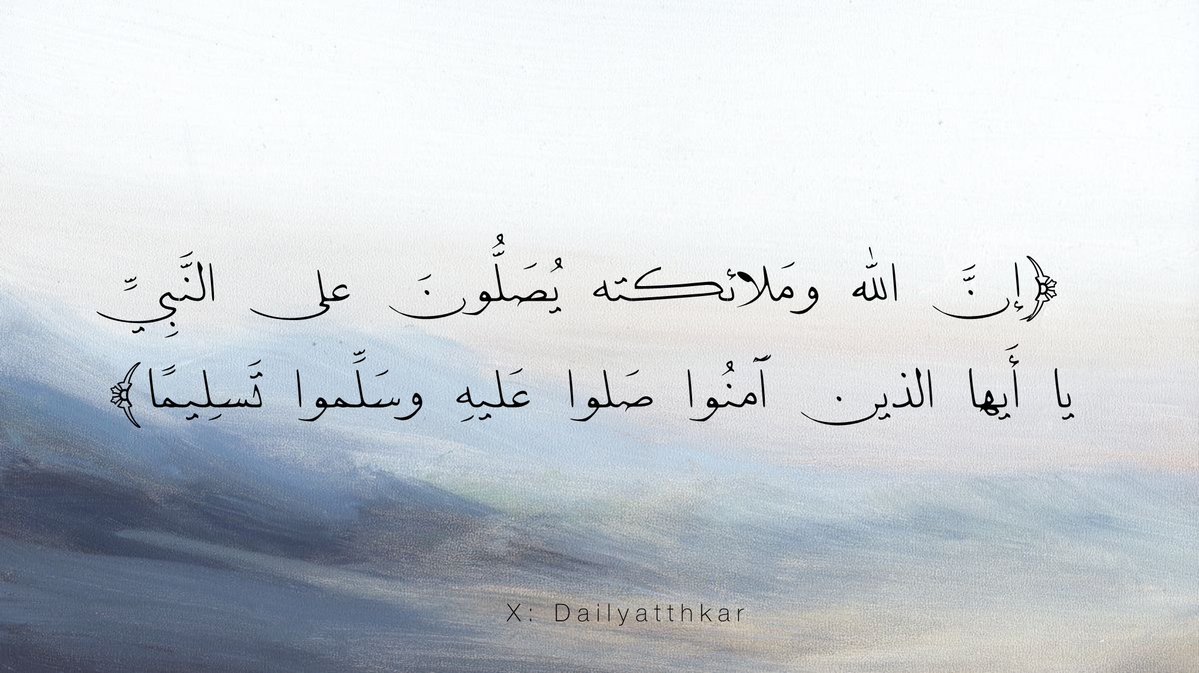 ﴿إنَّ الله ومَلائكته يُصَلُّونَ على النَّبِيِّ
يا أَيها الذين آمنُوا صَلوا عَليهِ وسَلِّموا تَسلِيمًا﴾
X: Dailyatthkar